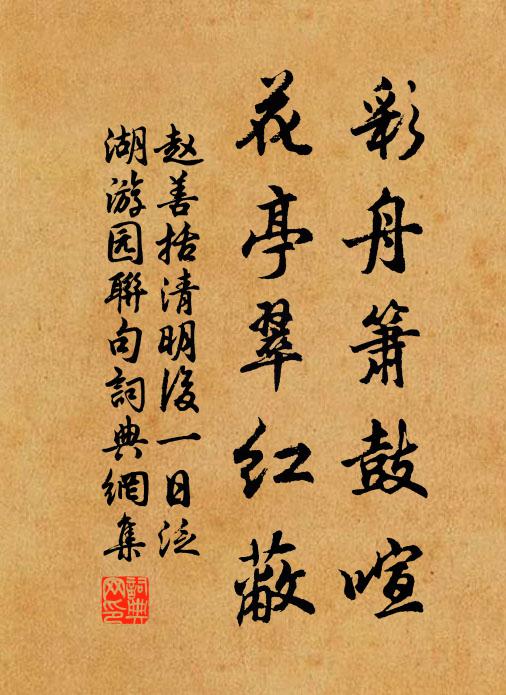 彩舟箫鼓喧
花亭翠红蔽
赵善括清明後一日泛
湖游园聯句詞典網集
詞典网印